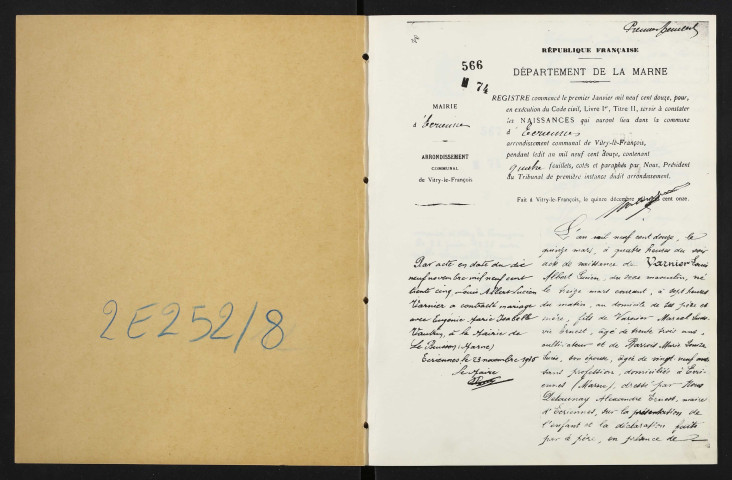 2E252/8
Premier feuillet
566
M 74
RÉPUBLIQUE FRANÇAISE
DÉPARTEMENT DE LA MARNE
MAIRIE
d'Ecriennes
ARRONDISSEMENT
COMMUNAL
de Vitry-le-François
REGISTRE commencé le premier Janvier mil neuf cent douze, pour,
en exécution du Code civil, Livre Ier, Titre II, servir à constater
les NAISSANCES qui auront lieu dans la commune
d'Ecriennes
arrondissement communal de Vitry-le-François,
pendant ledit an mil neuf cent douze, contenant
quatre feuillets, cotés et paraphés par Nous, Président
du Tribunal de première instance dudit arrondissement.
Fait à Vitry-le-François, le quinze décembre mil neuf cent onze.
Par acte en date du dix
neuf novembre mil neuf cent
trente cinq Louis Albert Lucien
Varnier a contracté mariage
avec Eugénie Marie Isabelle
à la Mairie de
Le Buisson (Marne)
Ecriennes le 23 novembre 1935
le Maire
L'an mil neuf cent douze, le
quinze mars, à quatre heures du soir
acte de naissance de Varnier Louis
Albert Lucien, du sexe masculin, né
le treize mars courant, à sept heures
du matin, au domicile de ses père et
mère, fils de Varnier Marcel Ludo-
vic Ernest, âgé de trente trois ans,
cultivateur et de Barrois Marie Louise
son épouse, âgée de vingt neuf ans
sans profession, domiciliés à Ecri-
ennes (Marne), dressé par Nous
Delaunay Alexandre Ernest, maire
d'Ecriennes, sur la présentation de
l'enfant et la déclaration faite
par le père, en présence de